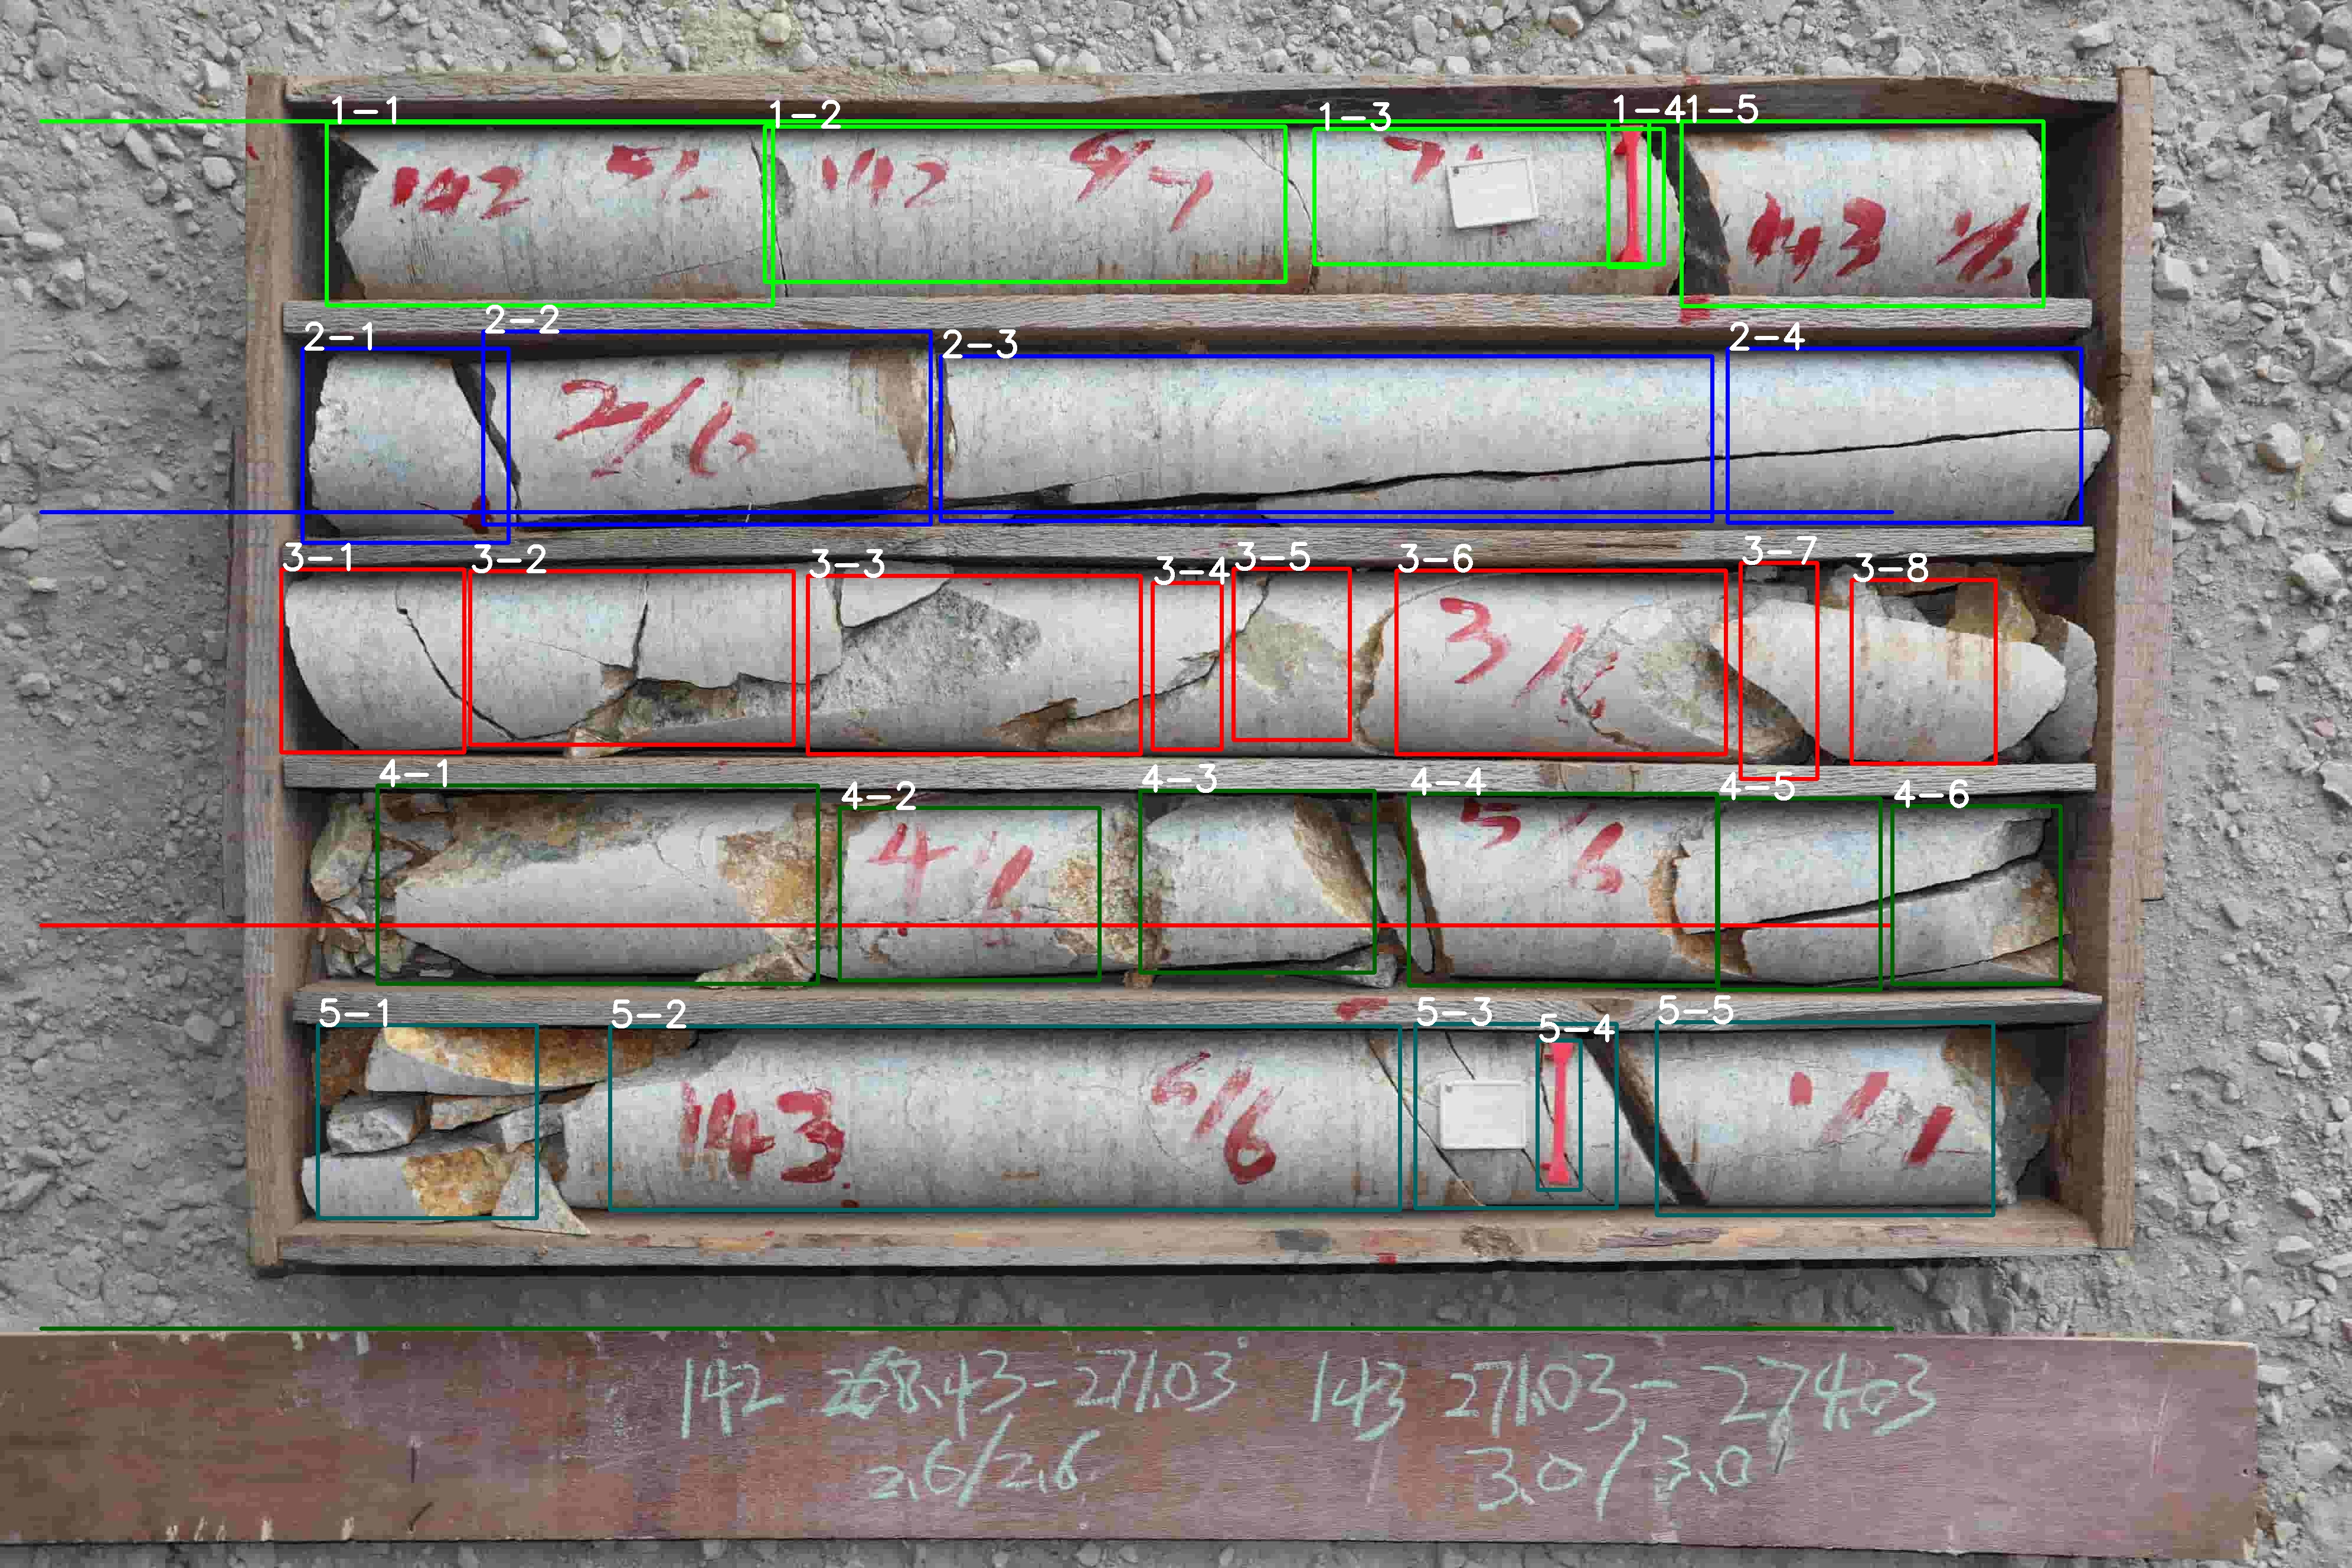 1-1 1-2 1-3 1-4 1-5
142 142 143
2-1 2-2 2-3 2-4
2/6
3-1 3-2 3-3 3-4 3-5 3-6 3-7 3-8
3/6
4-1 4-2 4-3 4-4 4-5 4-6
4/6 5/6
5-1 5-2 5-3 5-4 5-5
143 6/6
142 268.43-271.03 143 271.03-274.03
2.6/2.6 3.0/3.0